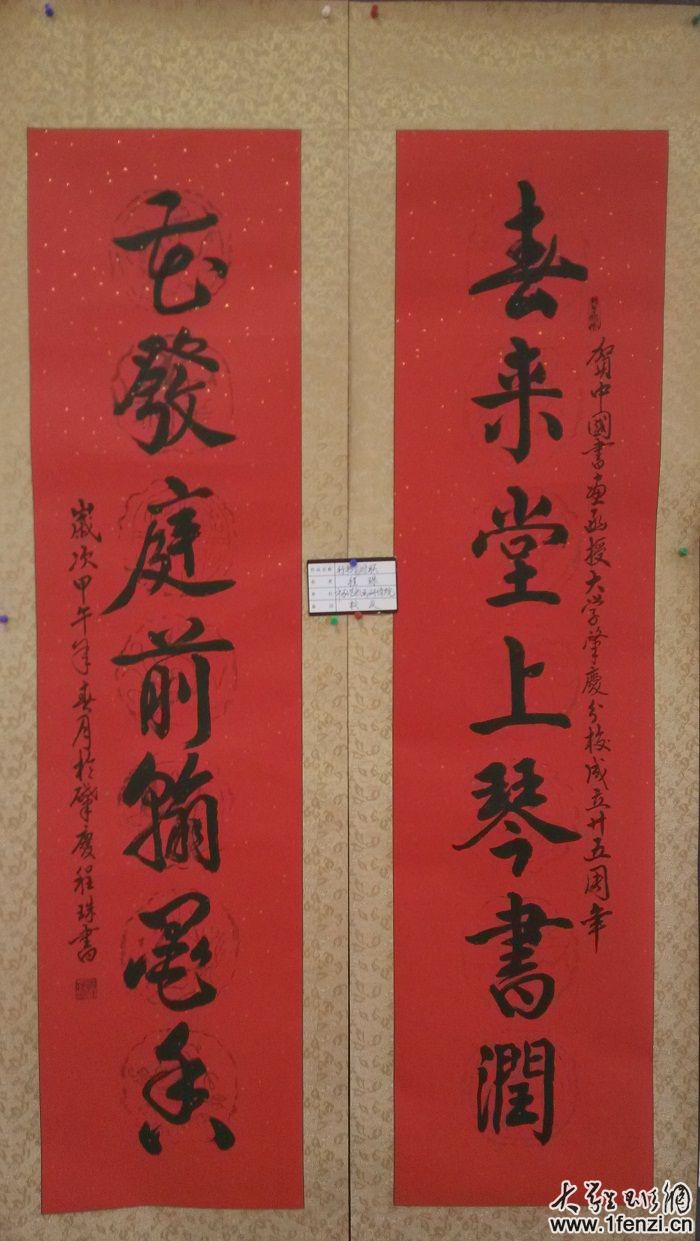 春来堂上琴書潤
賀中國書畫函授大学肇慶分校成立廿五周年
花發庭前翰墨香
歲次甲午年春月於肇慶程珠書
程珠
肇庆
大学生班级网
www.1fenzi.cn